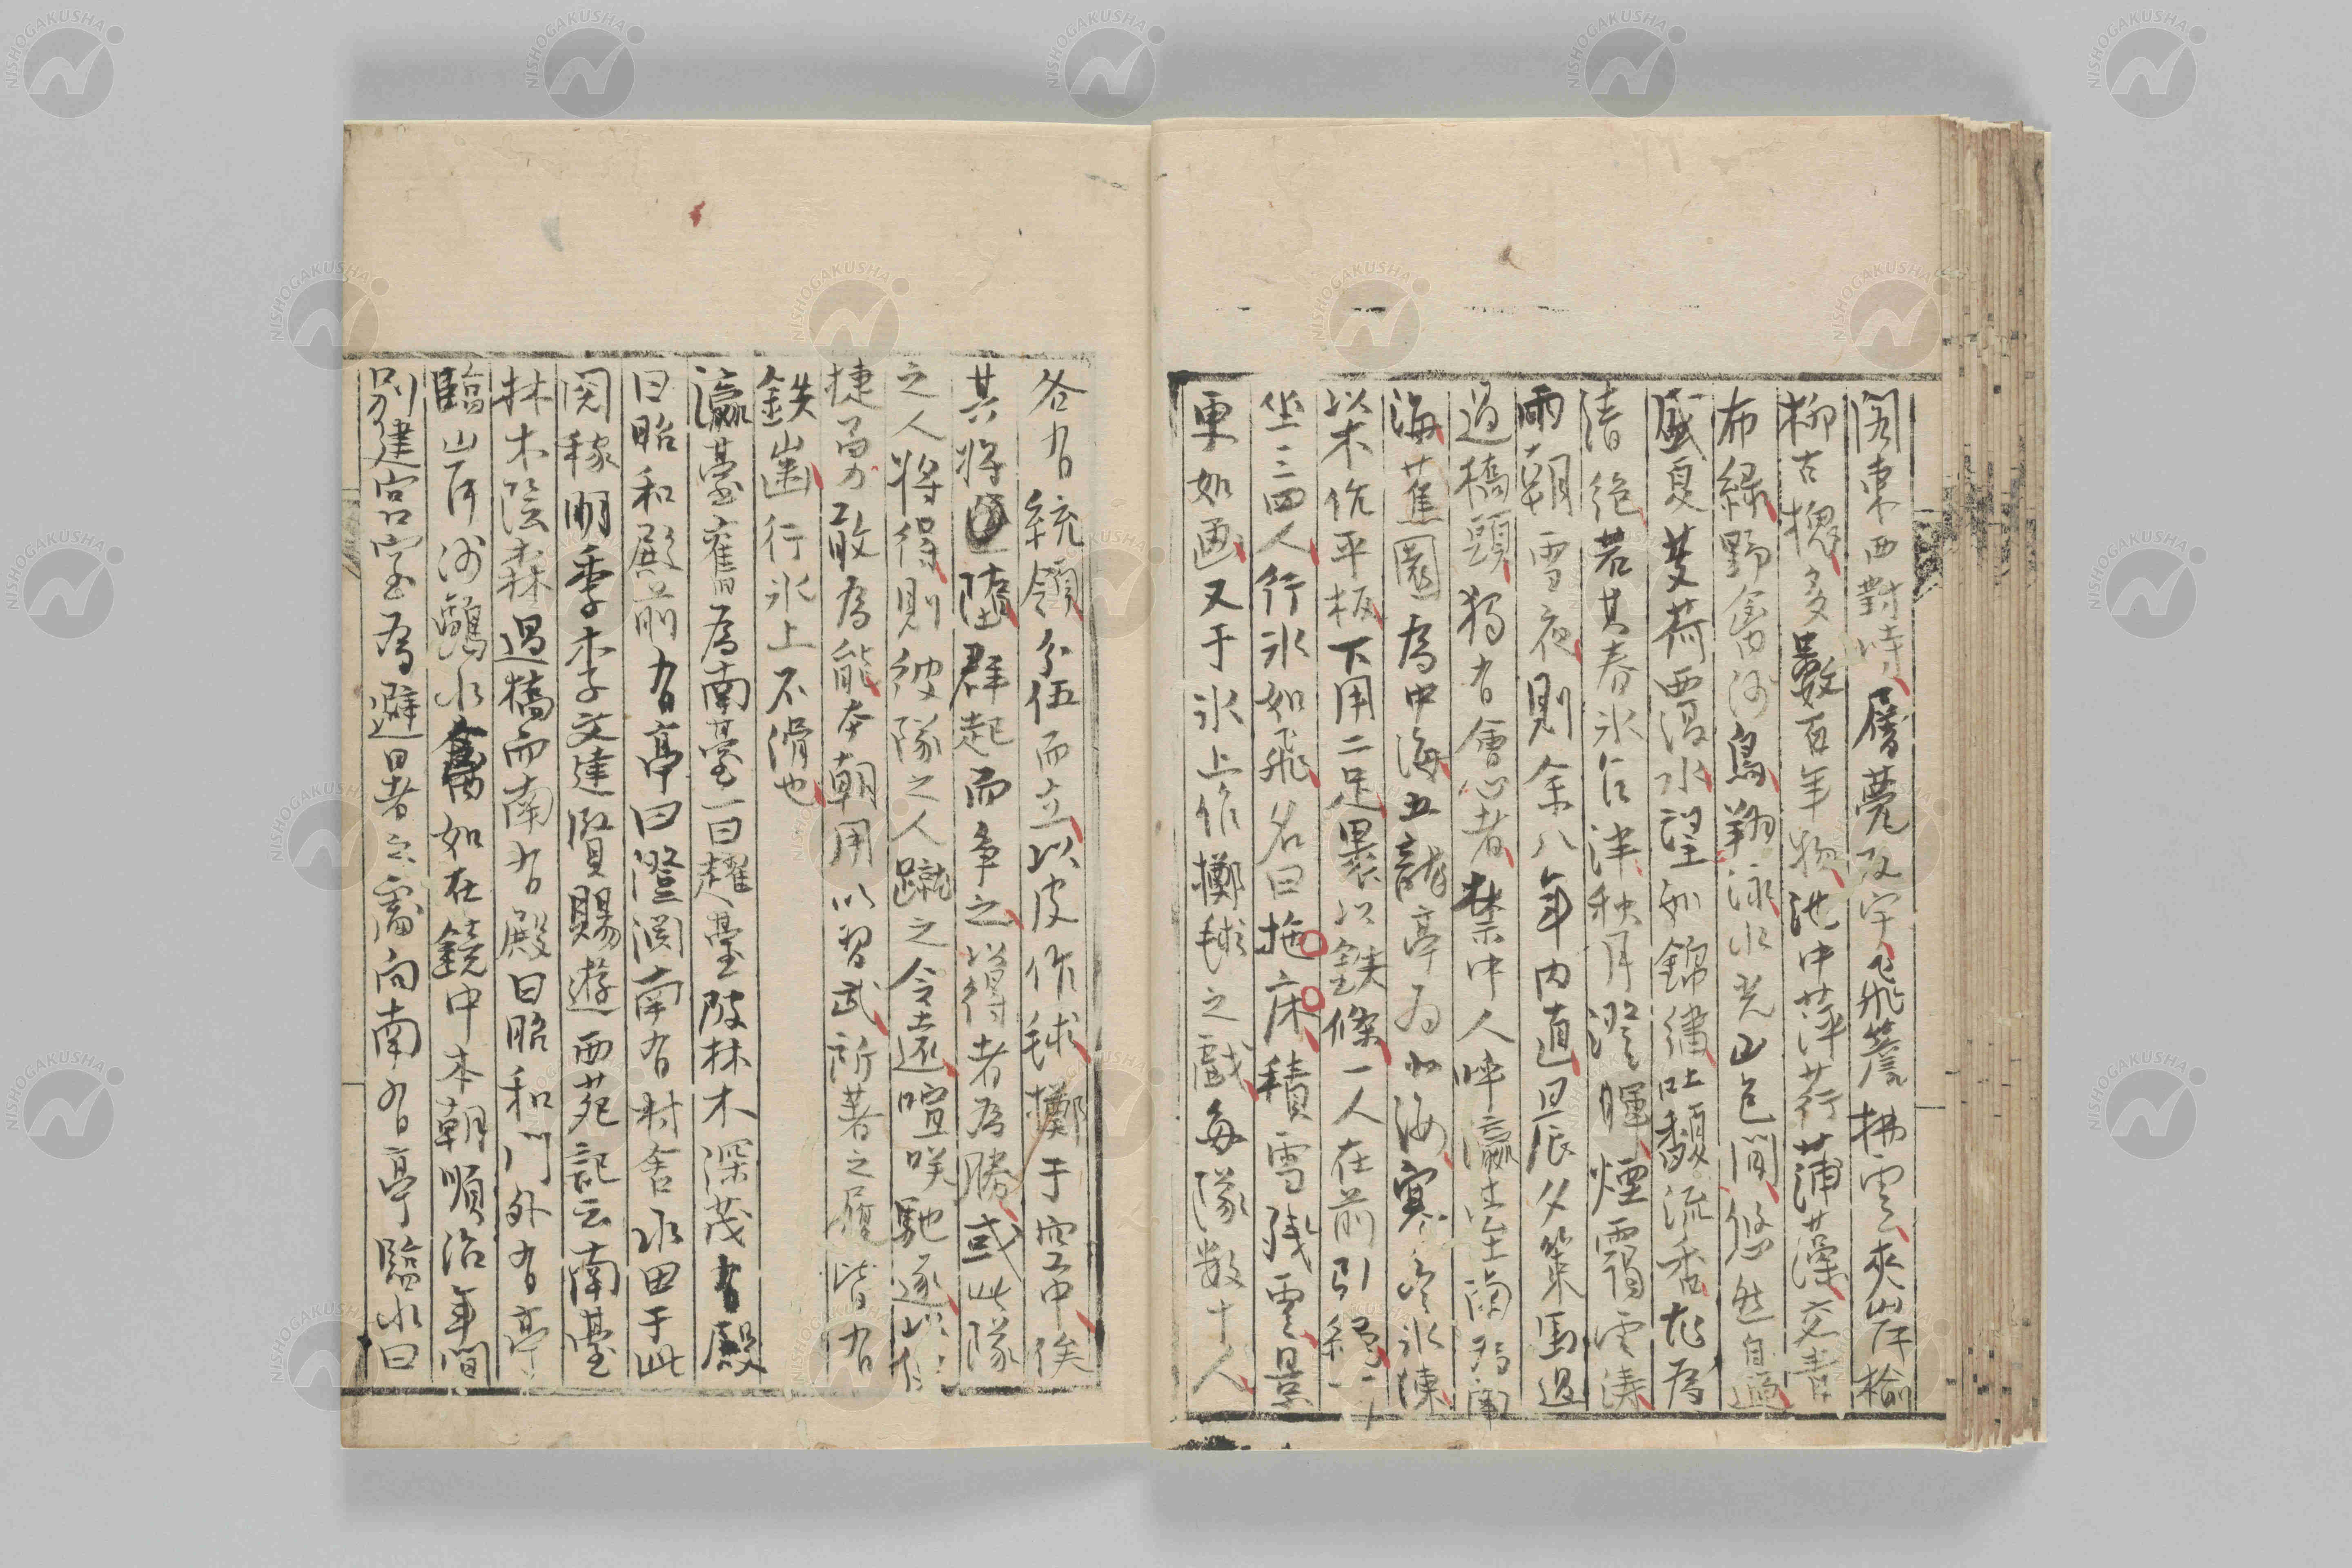 閣東西對峙層甍反宇飛簷拂雲夾岸榆
柳古槐多數百年物池中萍荇蒲藻交青
布綠野禽沙鳥翔泳水光山色間悠然自適
盛夏芰荷覆水望如錦繡吐馥流香尤為
清絕若其春冰仁津秋月澄暉煙靄雲濤
雨朝雪夜則余八年內直晨夕策馬過
過橋頭獨有會心者禁中人呼瀛臺南為南
海蕉園為中海五龍亭為北海寒冬冰凍
以木作平板下用二足裹以鐵條一人在前引繩一人
坐三四人行冰如飛名曰拖床積雪殘雲景
更如畫又于冰上作擲毬之戲每隊數十人
各有統領分伍而立以皮作毬擲于空中俟
其將墮群起而爭之得者為勝或此隊
之人將得則彼隊之人蹴之令遠喧咲馳逐以便
捷勇敢為能本朝用以習武所著之履皆有
鉄齒行冰上不滑也
瀛臺舊為南臺一曰趯臺陂林木深茂有殿
曰昭和殿前有亭曰澄淵南有村舍水田于此
閱稼明季李文達賢賜遊西苑記云南臺
林木陰森過橋而南有殿曰昭和門外有亭
臨岸沙鷗水禽如在鏡中本朝順治年間
別建宮室為避暑之處向南有亭臨水曰
NISHOGAKUSHA